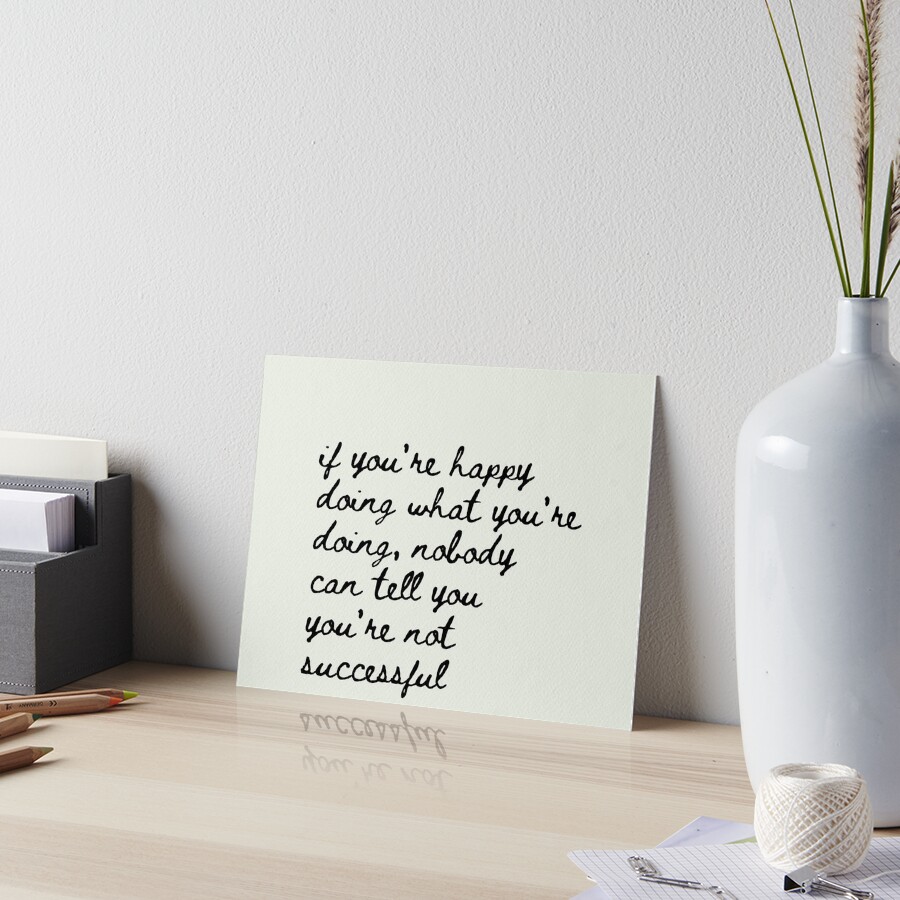 if you're happy
doing what you're
doing, nobody
can tell you
you're not
successful